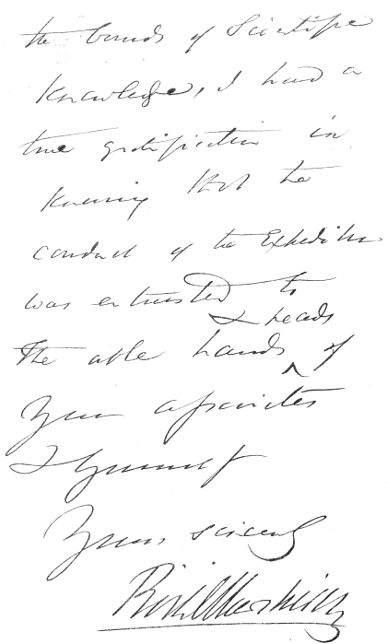 the bounds of Scientific
Knowledge, I had a
true gratification in
knowing that the
conduct of the Expedition
was entrusted to
& heads
the able hands ^ of
Your associates
& yourself
Yours sincerely